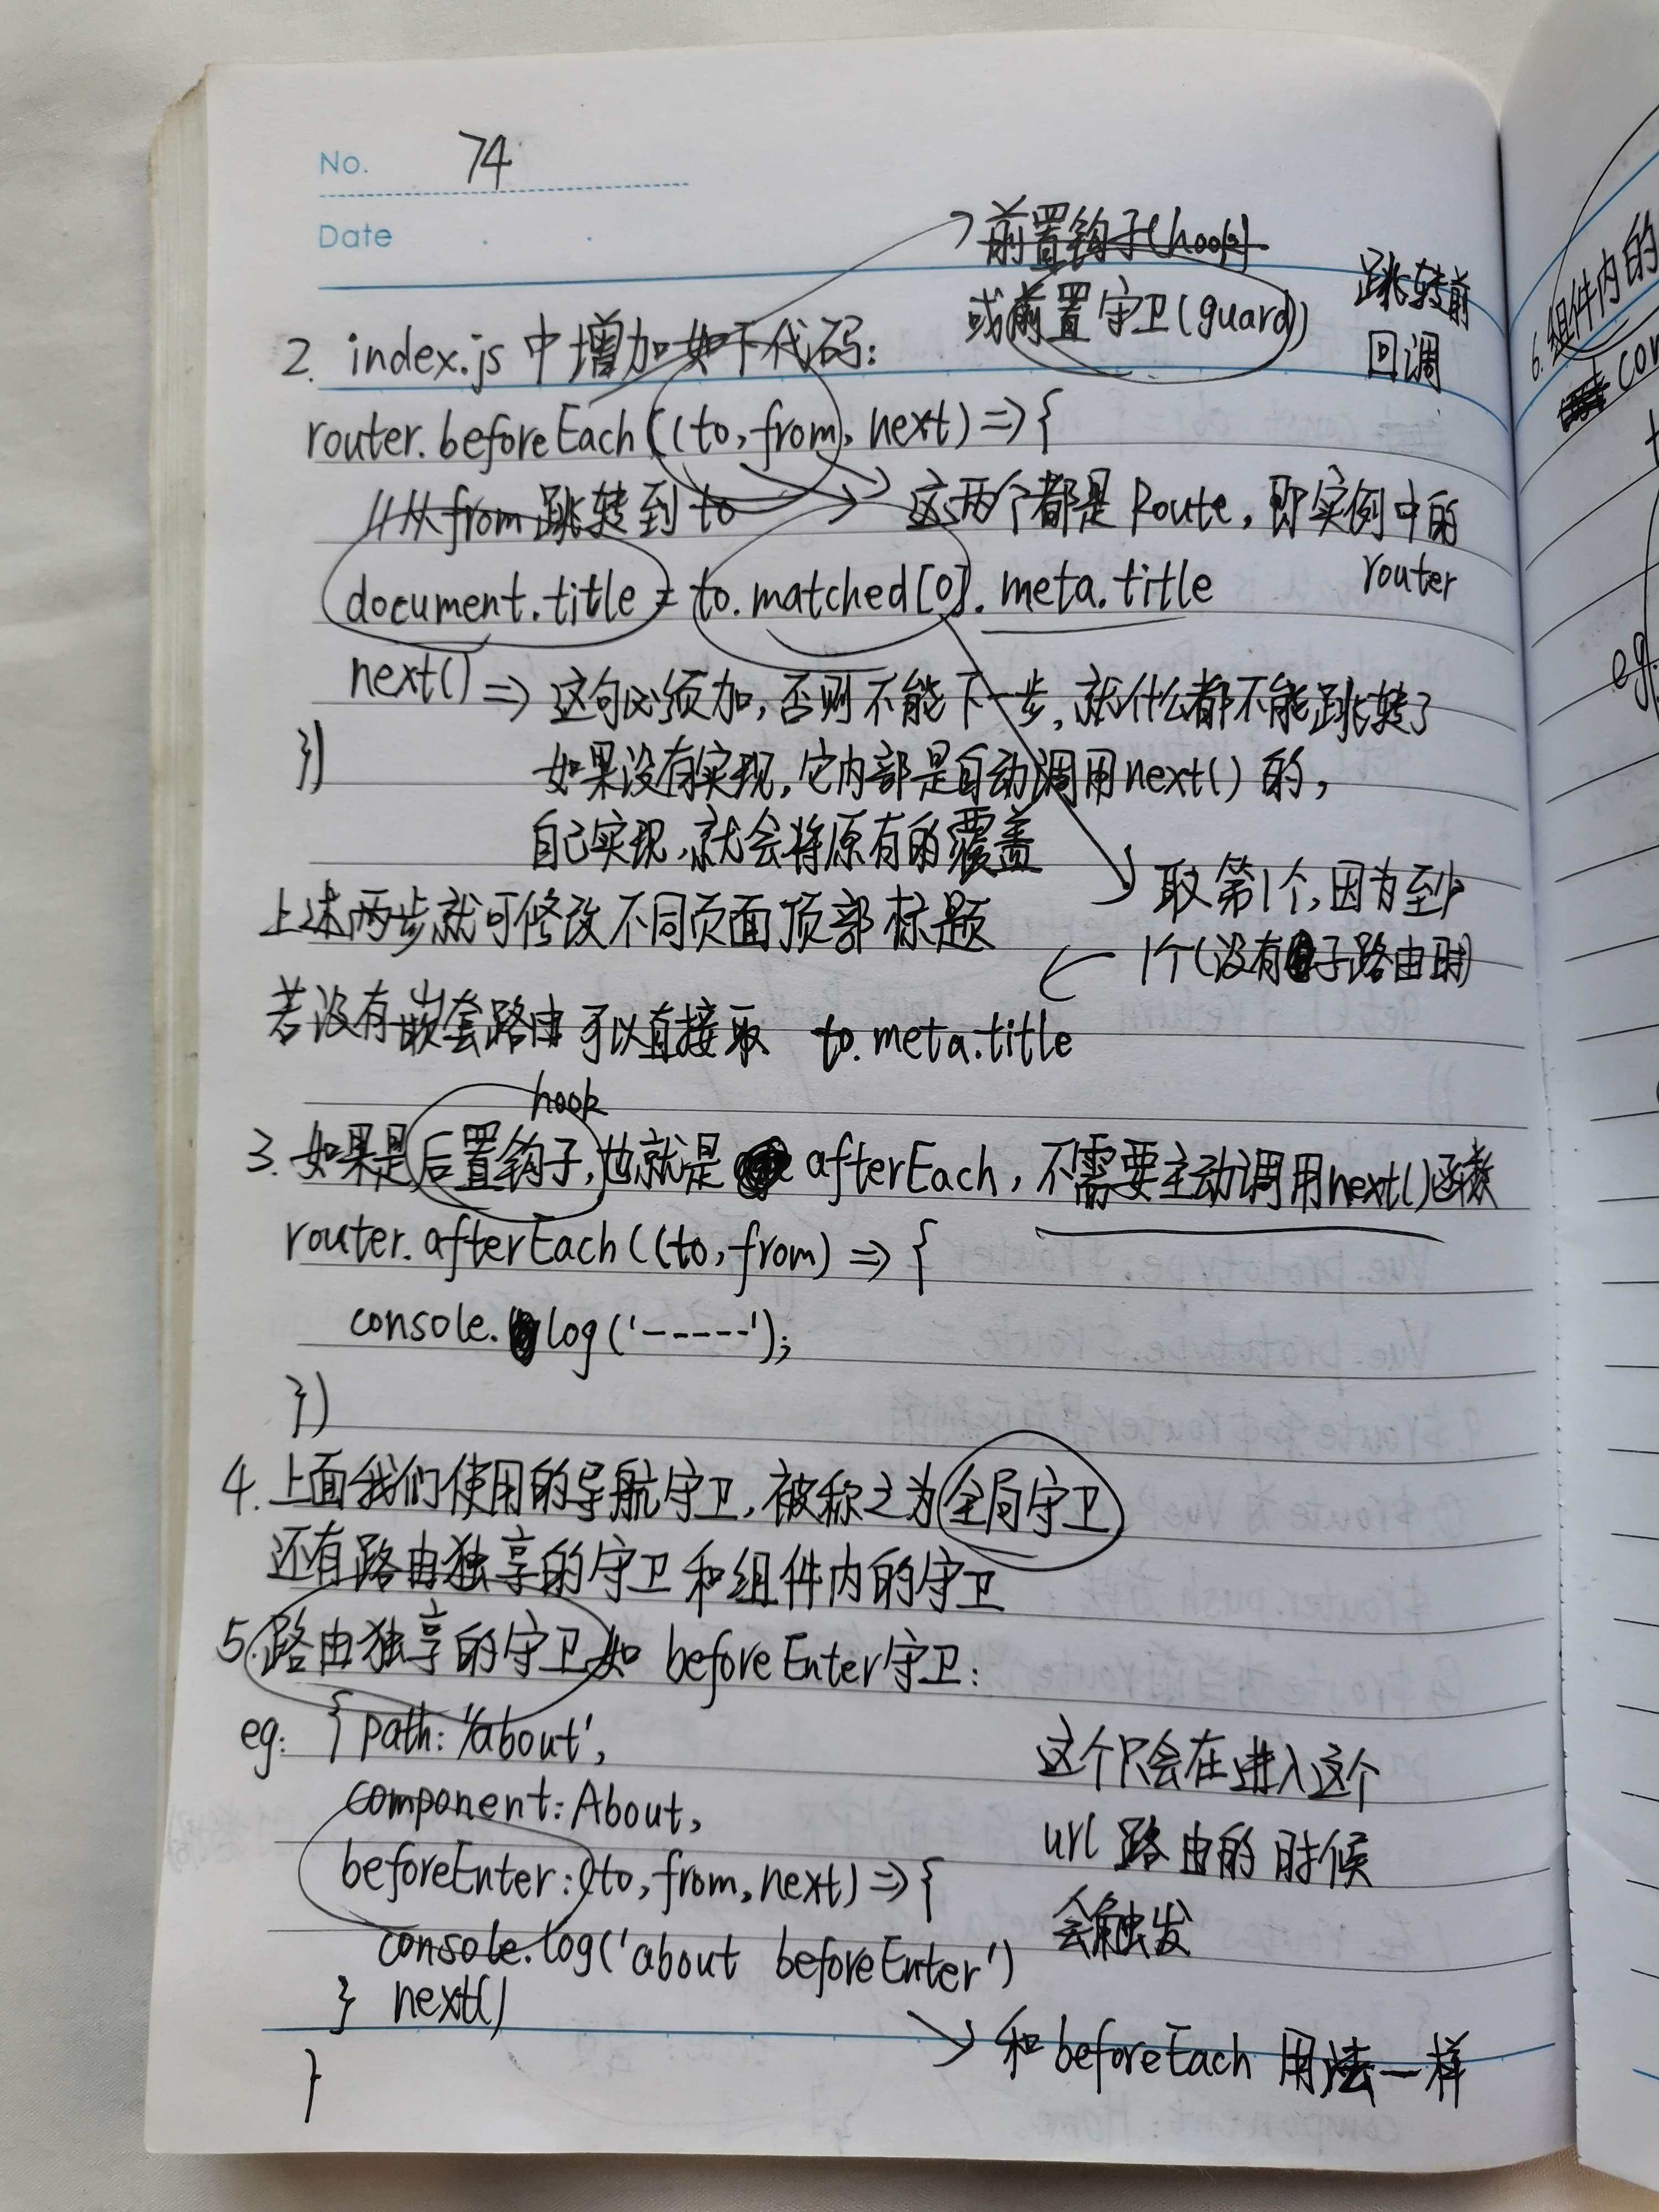 No. 74
Date
前置钩子(hook)
或前置守卫(guard)
跳转前
回调
2. index.js 中增加如下代码:
router.beforeEach((to,from, next) => {
//从from跳转到to
这两个都是 Route, 即实例中的
router
document.title = to.matched[0].meta.title
next() => 这句必须加, 否则不能下一步, 就什么都不能跳转了
})
如果没有实现, 它内部是自动调用next()的,
自己实现, 就会将原有的覆盖
取第1个, 因为至少
1个(没有子路由时)
上述两步就可修改不同页面顶部标题
若没有嵌套路由可以直接取 to.meta.title
hook
3. 如果是后置钩子, 也就是 afterEach, 不需要主动调用next()函数
router.afterEach((to,from) => {
console.log('-----');
})
4. 上面我们使用的导航守卫, 被称之为全局守卫
还有路由独享的守卫和组件内的守卫
5. 路由独享的守卫如 beforeEnter守卫:
eg: { path: '/about',
component: About,
beforeEnter: (to, from, next) => {
console.log('about beforeEnter')
} next()
}
这个只会在进入这个
url 路由的时候
会触发
和 beforeEach 用法一样
6. 组件内的
con
eg.